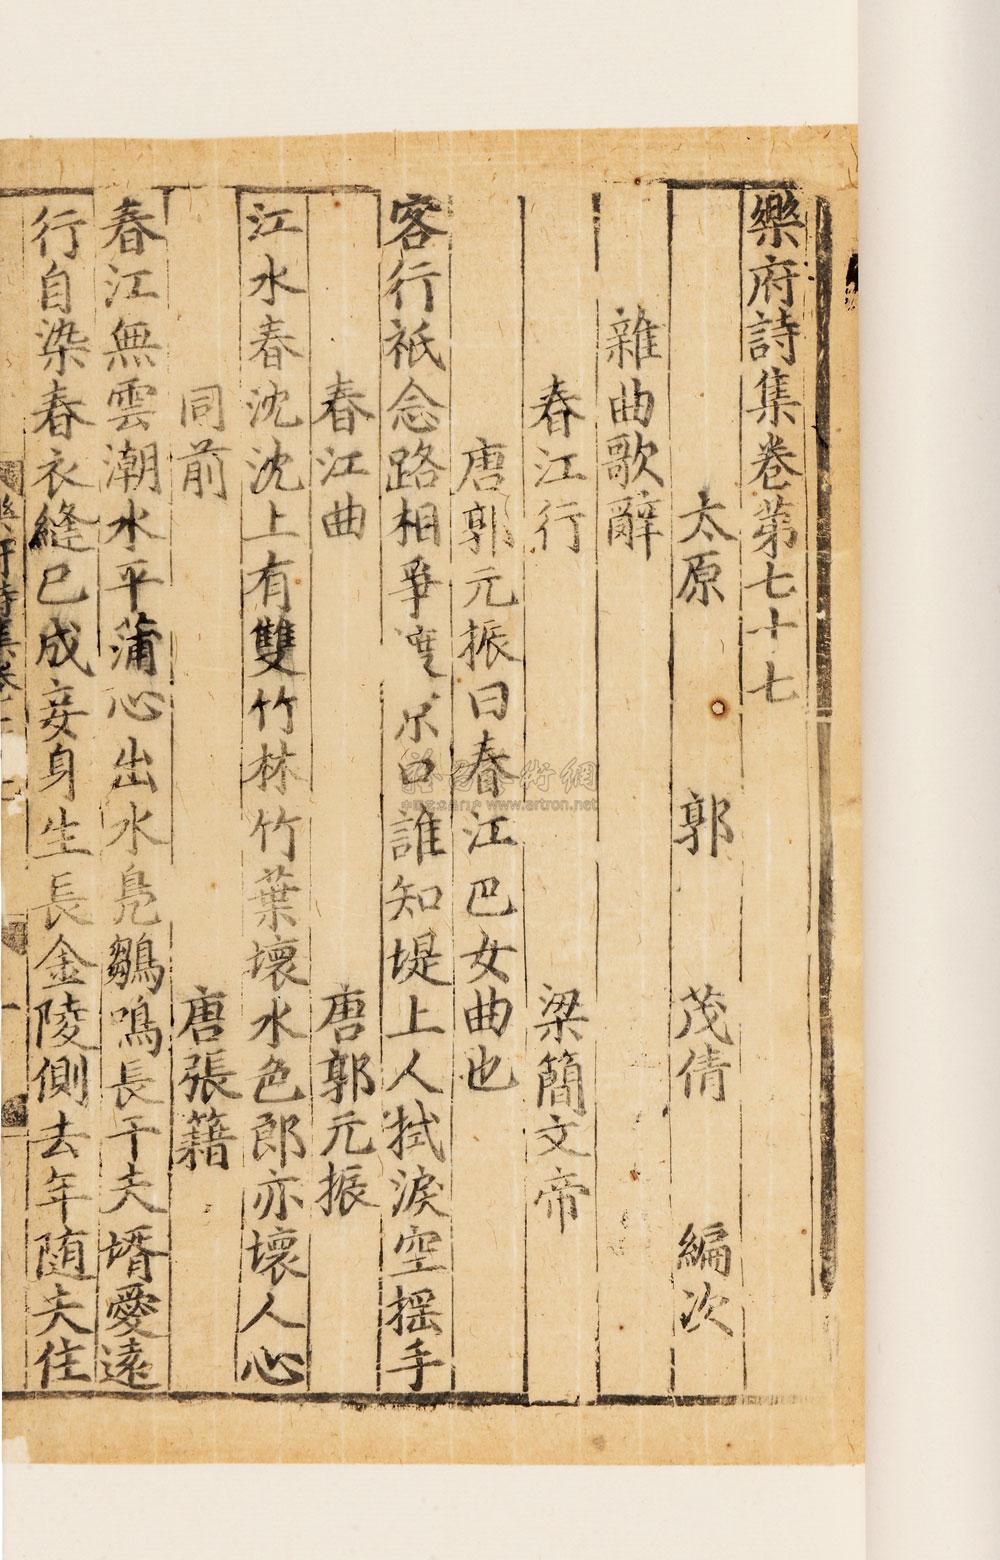 樂府詩集卷第七十七
太原 郭 茂倩 編次
雜曲歌辭
春江行 梁簡文帝
唐郭元振曰春江巴女曲也
客行祇念路相爭渡京口誰知堤上人拭淚空揺手
春江曲 唐郭元振
江水春沈沈上有雙竹林竹葉壞水色郎亦壞人心
同前 唐張籍
春江無雲潮水平蒲心出水鳧鶵鳴長干夫壻愛遠
行自染春衣縫已成妾身生長金陵側去年随夫住
樂府詩集卷七十七
www.artron.net